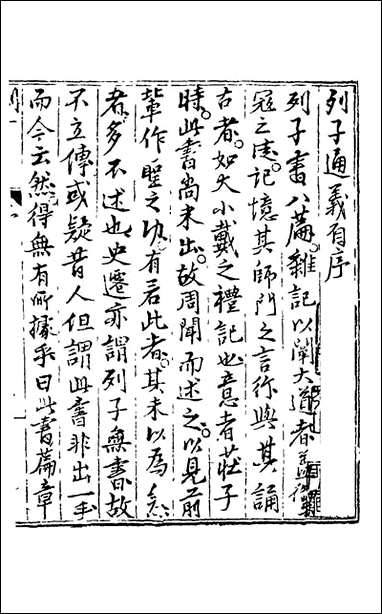 列子通義序
列子書八篇雜記以闡大道者蓋
冦之徒記憶其師門之言行與其誦
古者如大小戴之禮記也意者莊子
時此書尚未出故周聞而述之以見前
輩作聖之功有若此者其未以為
者多不述也史遷亦謂列子無書故
不立傳或疑昔人但謂此書非出一手
而今云然得無有所據乎曰此書篇章